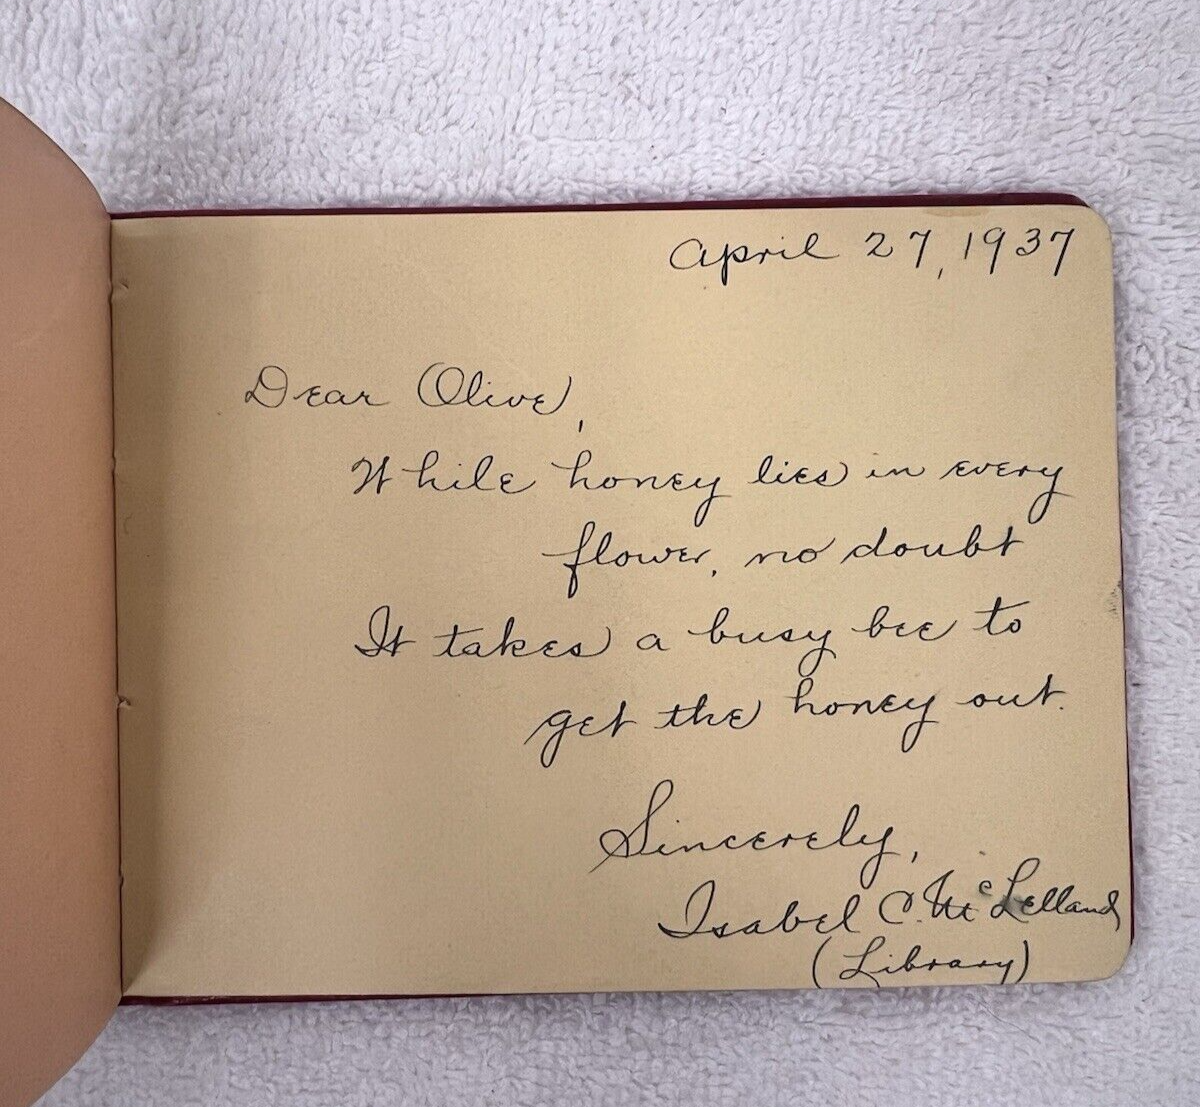 April 27, 1937
Dear Olive,
While honey lies in every
flower, no doubt
It takes a busy bee to
get the honey out.
Sincerely,
Isabel C. McLelland
(Library)